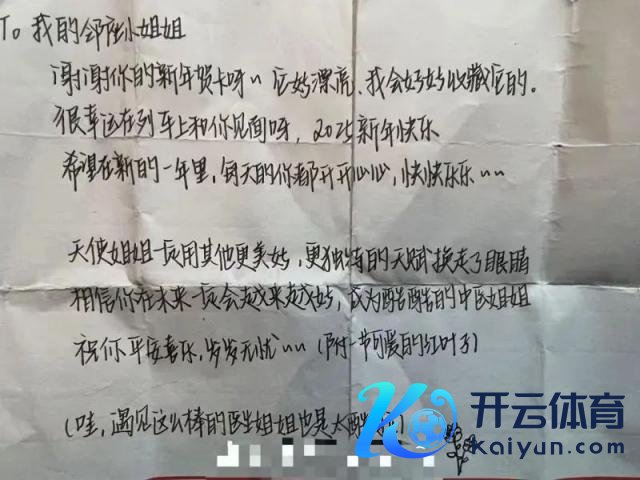 To 我的邻座小姐姐
谢谢你的新年贺卡呀~ 它好漂亮、我会好好收藏它的。
很幸运在列车上和你见面呀，2025新年快乐
希望在新的一年里，每天的你都开开心心，快快乐乐~~
天使姐姐一定用其他更美好，更独特的天赋换走了眼睛
相信你在未来一定会越来越好，成为酷酷的中医姐姐
祝你平安喜乐，岁岁无忧~~（附一节可爱的红叶子）
（哇，遇见这么棒的医生姐姐也是太酷
开云体育
Kaiyun.com